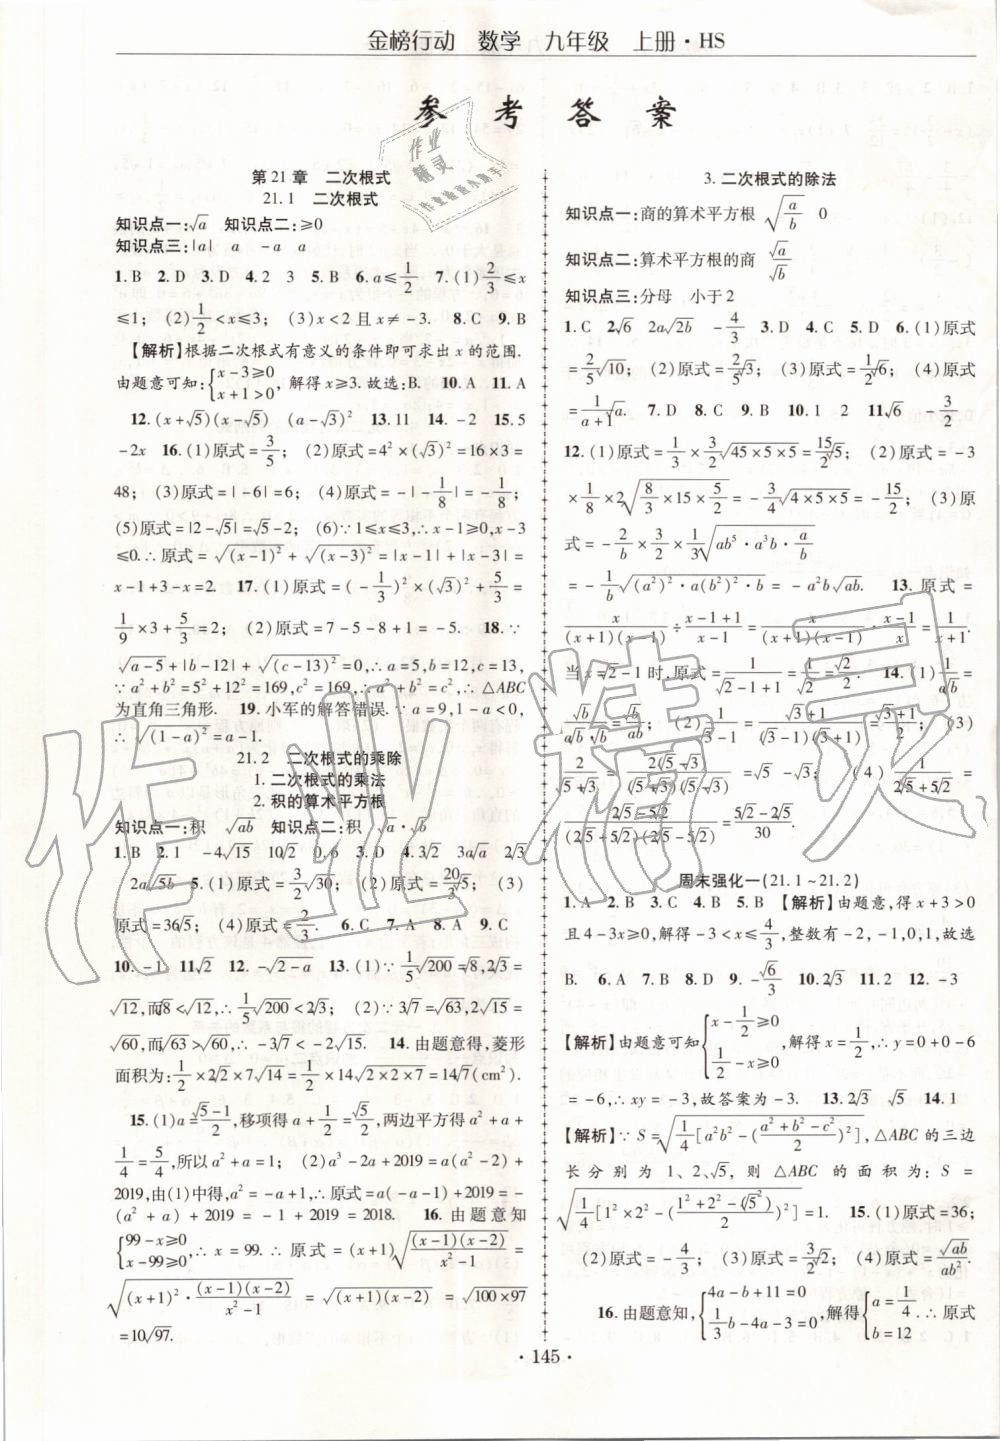 金榜行动 数学 九年级 上册·HS
参考答案
第21章 二次根式
21.1 二次根式
知识点一:√a 知识点二:≥0
知识点三:|a| a -a a
1.B 2.D 3.D 4.2 3 5.B 6.a≤1/2 7.(1)2/3≤x
≤1; (2)1/2<x≤3; (3)x<2且x≠-3. 8.C 9.B
【解析】根据二次根式有意义的条件即可求出x的范围.
由题意可知:{x-3≥0 x+1>0, 解得x≥3.故选:B. 10.A 11.A
12.(x+√5)(x-√5) (a-√3)² 13.11 14.-2 15.5
-2x 16.(1)原式=3/5; (2)原式=4²×(√3)²=16×3=
48; (3)原式=|-6|=6; (4)原式=-|-1/8|=-1/8;
(5)原式=|2-√5|=√5-2; (6)∵1≤x≤3,∴x-1≥0,x-3
≤0.∴原式=√(x-1)²+√(x-3)²=|x-1|+|x-3|=
x-1+3-x=2. 17.(1)原式=(-1/3)²×(√3)²+5/3=
1/9×3+5/3=2; (2)原式=7-5-8+1=-5. 18.∵
√(a-5)+|b-12|+√(c-13)²=0,∴a=5,b=12,c=13,
∵a²+b²=5²+12²=169,c²=169,∴a²+b²=c²,∴△ABC
为直角三角形. 19.小军的解答错误.∵a=9,1-a<0,
∴√(1-a)²=a-1.
21.2 二次根式的乘除
1.二次根式的乘法
2.积的算术平方根
知识点一:积 √ab 知识点二:积 √a·√b
1.B 2.1 -4√15 10√2 0.6 3.D 4.3√2 3a√a 2√3
2a√5b 5.(1)原式=3/2√30; (2)原式=20/3√5; (3)
原式=36√5; (4)原式=2/3. 6.C 7.A 8.A 9.C
10.-1 11.√2 12.-√(2-a) 13.(1)∵1/5√200=√8,2√3=
√12,而√8<√12,∴1/5√200<2√3; (2)∵3√7=√63,2√15=
√60,而√63>√60,∴-3√7<-2√15. 14.由题意得,菱形
面积为:1/2×2√2×7√14=1/2×14√(2×2×7)=14√7(cm²).
15.(1)a=(√5-1)/2,移项得a+1/2=√5/2,两边平方得a²+a+
1/4=5/4,所以a²+a=1; (2)a³-2a+2019=a(a²-2)+
2019,由(1)中得,a²=-a+1,∴原式=a(-a-1)+2019=-
(a²+a)+2019=-1+2019=2018. 16.由题意知
{99-x≥0 x-99≥0,∴x=99.∴原式=(x+1)√((x-1)(x-2)/(x²-1))=
√((x+1)²·(x-1)(x-2)/(x²-1))=√((x+1)(x-2))=√(100×97)
=10√97.
3.二次根式的除法
知识点一:商的算术平方根 √(a/b) 0
知识点二:算术平方根的商 √a/√b
知识点三:分母 小于2
1.C 2.√6 2a√2b -4/3 3.D 4.C 5.D 6.(1)原式
=2/5√10; (2)原式=2/3; (3)原式=6/5; (4)原式
=1/(a+1)√a. 7.D 8.C 9.B 10.1 2 11.√6 -3/2
12.(1)原式=1/3×3/2√(45×5×5)=15/2√5; (2)原式=-3
×1/8×2√(8/3×15×5/2)=-3/4√(4×5×5)=-15/2; (3)原
式=-2/b×3/2×1/3√(ab⁵·a³b·a/b)
=-1/b√((a²)²·a(b²)²·b)=-a²b√ab. 13.原式=
x/((x+1)(x-1))÷(x-1+1)/(x-1)=x/((x+1)(x-1))·(x-1)/x=1/(x+1).
当x=√2-1时,原式=1/(√2-1+1)=1/√2=√2/2. 14.(1)1/(a√b)=
√b/(a√b·√b)=√b/ab; (2)1/(√3-1)=(√3+1)/((√3-1)(√3+1))=(√3+1)/2; (3)
2/(√5+√3)=2(√5-√3)/((√5+√3)(√5-√3))=√5-√3; (4)1/(2√5+5√2)=
(2√5-5√2)/((2√5+5√2)(2√5-5√2))=(5√2-2√5)/30.
周末强化一(21.1~21.2)
1.A 2.B 3.C 4.B 5.B 【解析】由题意,得x+3>0
且4-3x≥0,解得-3<x≤4/3,整数有-2,-1,0,1,故选
B. 6.A 7.B 8.D 9.-√6/3 10.2√3 11.2 12.-3
【解析】由题意可知{x-1/2≥0 1/2-x≥0,∴x=1/2,∴y=0+0-6
=-6,∴xy=-3,故答案为-3. 13.2√3 √5 14.1
【解析】∵S=√(1/4[a²b²-((a²+b²-c²)/2)²]),△ABC的三边
长分别为1、2、√5,则△ABC的面积为:S=
√(1/4[1²×2²-((1²+2²-(√5)²)/2)²])=1. 15.(1)原式=36;
(2)原式=-4/3; (3)原式=3/2√2; (4)原式=√ab/ab².
16.由题意知,{4a-b+11=0 1/3b-4a-3=0,解得{a=1/4 b=12.∴原式
·145·
作业精灵